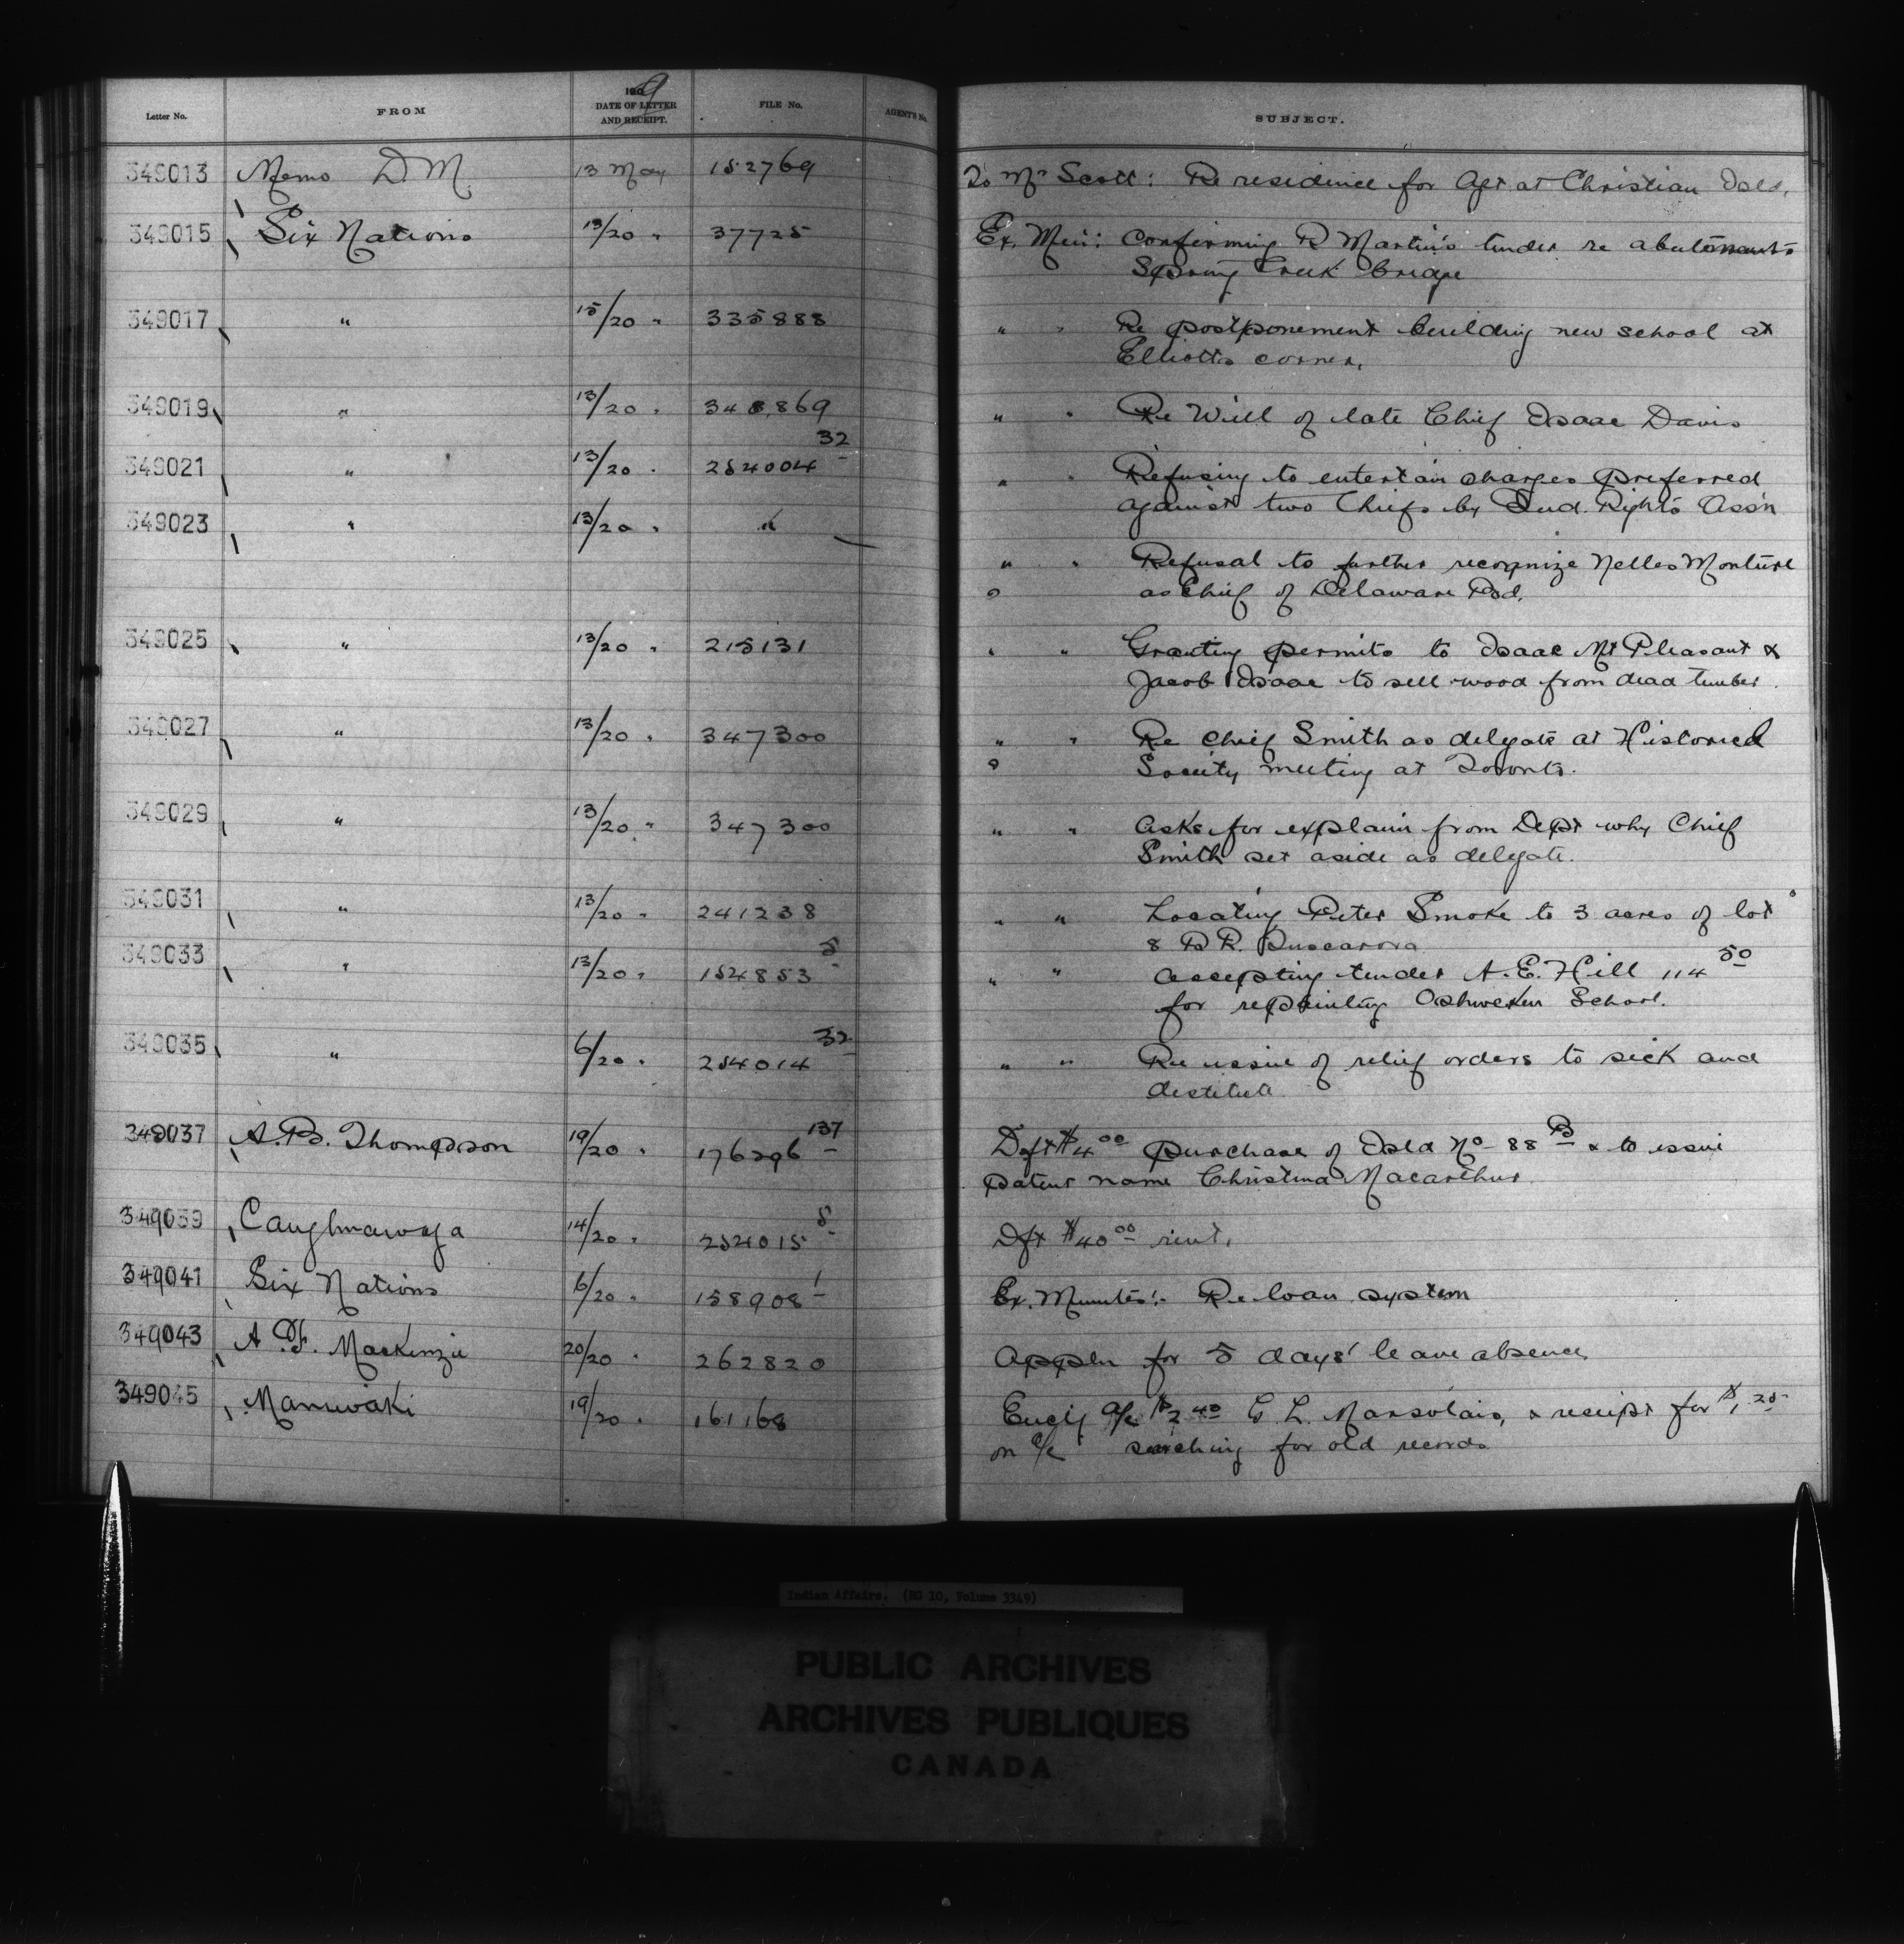 Letter No. FROM 1909 DATE OF LETTER AND RECEIPT. FILE No. AGENT'S No. SUBJECT.
349013 Memo D.M. 13 May 152769 To Mr Scott: Re residence for Agt at Christian Isld.
349015 Six Nations 13/20 " 37725 Ex. Min: Confirming R Martin's tender re abutments
Spring Creek bridge
349017 " 15/20 " 335888 " " Re postponement building new school at
Elliotts corner.
349019 " 13/20 " 348869 " " Re Will of late Chief Isaac Davis
349021 " 13/20 " 254004 32 " " Refusing to entertain charges preferred
against two Chiefs by Ind. Rights Ass'n
349023 " 13/20 " "
" " Refusal to further recognize Nelles Monture
as Chief of Delaware Bd.
349025 " 13/20 " 215131 " " Granting permits to Isaac Mt Pleasant &
Jacob Isaac to sell wood from dead timber.
349027 " 13/20 " 347300 " " Re Chief Smith as delgate at Historical
Society meeting at Toronto.
349029 " 13/20 " 347300 " " Asks for explain from Dept why Chief
Smith set aside as delegate.
349031 " 13/20 " 241238 " " Locating Peter Smoke to 3 acres of lot
8 B R. Tuscarora
349033 " 13/20 " 154853 5 " " Accepting tender A. E. Hill 114 50
for repainting Oshweken School.
349035 " 6/20 " 254014 32 " " Re issue of relief orders to sick and
destitute
349037 A. B. Thompson 19/20 " 176296 137 Dft $4 00 purchase of Isld No 88 B & to issue
patent name Christina Macarthur.
349039 Caughnawaga 14/20 " 254015 8 Dft $40 00 rent.
349041 Six Nations 6/20 " 158908 1 Ex. Minutes:- Re loan system
349043 A. F. Mackenzie 20/20 " 262820 Appln for 5 days' leave absence
349045 Maniwaki 19/20 " 161168 Encl'g a/c $2 40 G. L. Marsolais, & receipt for $1 25
on a/c searching for old records
Indian Affairs. (RG 10, Volume 3349)
PUBLIC ARCHIVES
ARCHIVES PUBLIQUES
CANADA